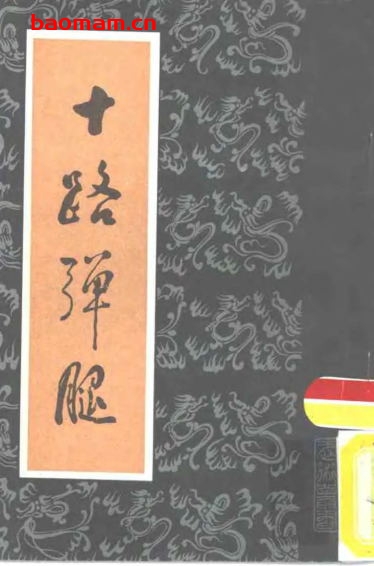 baomam.cn
十路弹腿